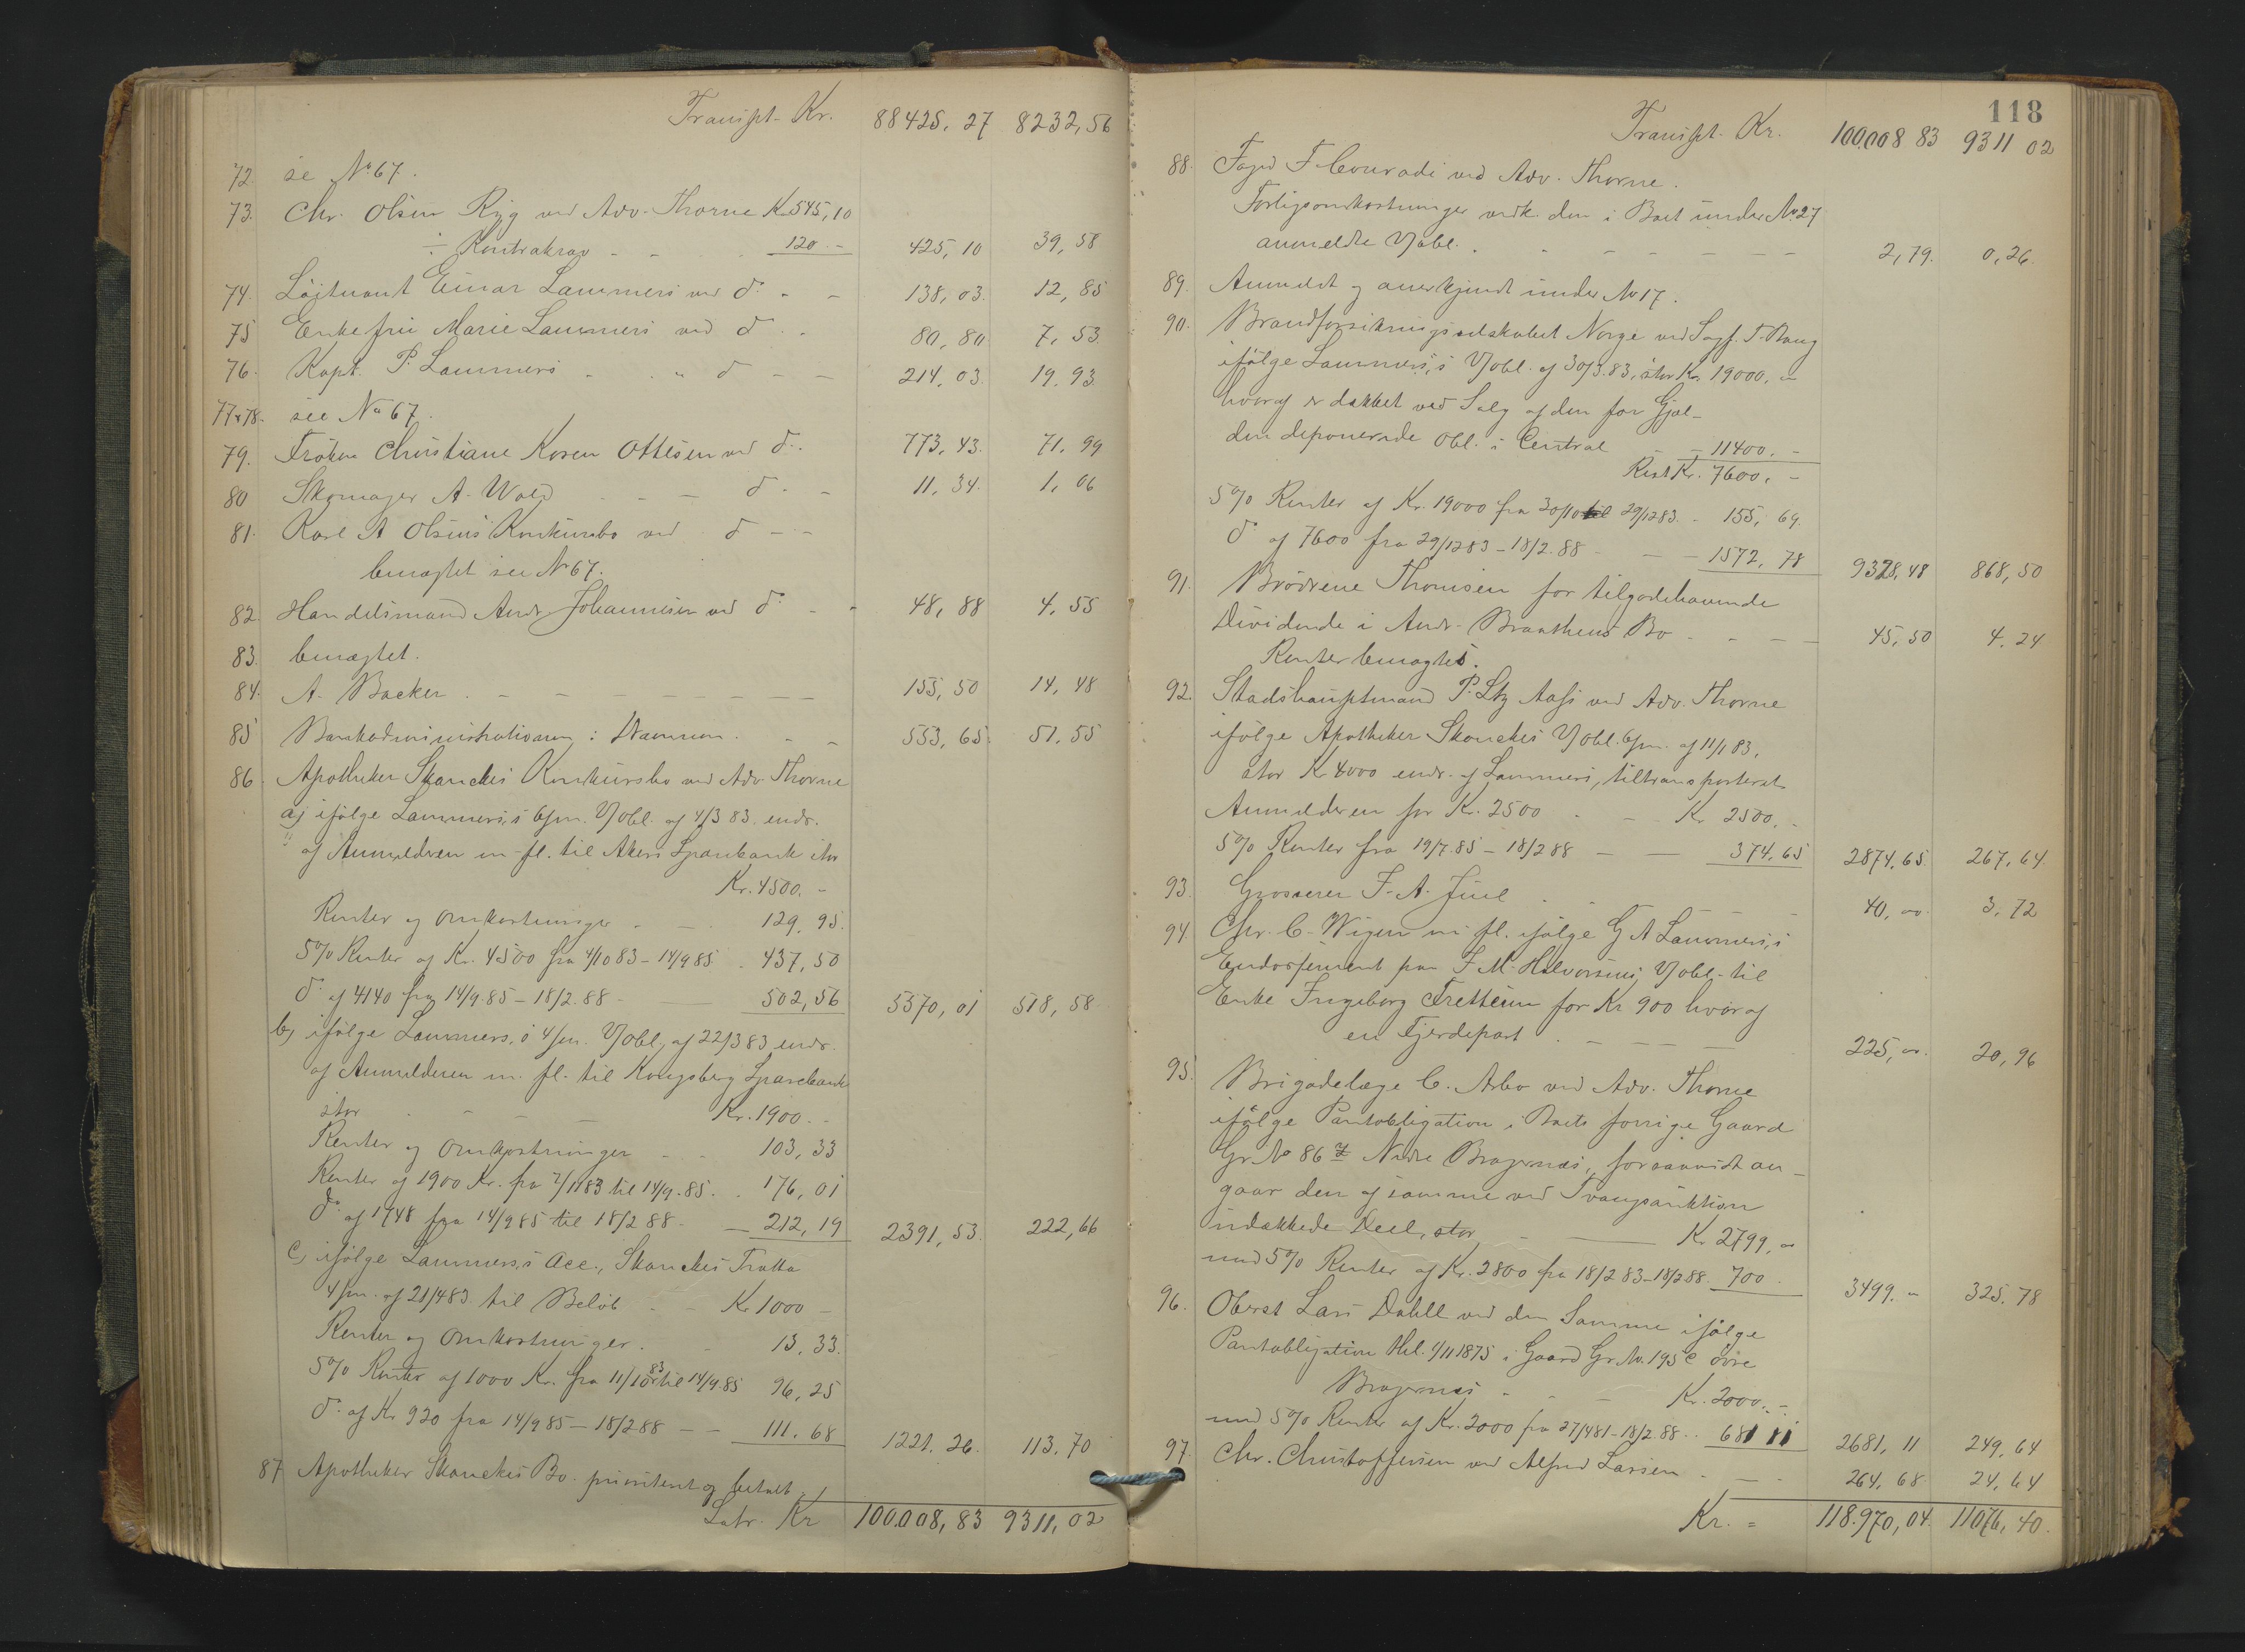 Transpt. Kr. 88425,27 8232,56
72. se No 67.
73. Chr. Olsen Ryg ved Adv. Thorne Kr. 545,10
÷ Kontrakrav - - 120.- 425,10 39,58
74. Löjtnant Einar Lammers ved do. - - 138,03. 12,85
75 Enkefru Marie Lammers ved do. - 80,80 7,53
76. Kapt. P. Lammers . . " do - - 214,03. 19,93
77 & 78. see No 67.
79. Fröken Christiane Koren Ottesen ved do. 773,43. 71,99
80 Skomager A. Wold - - - do. - 11,34. 1,06
81. Karl A Olsens Konkursbo ved do - -
benegtet see No 67.
82. Handelsmand Andr. Johannesen ved do. - - 48,88 4,55
83. benegtet.
84. A. Backer . - - - - - - 155,50 14,48
85 Bankadministrationen i Drammen . - - 553,65. 51,55
86. Apotheker Skanckes Konkursbo ved Adv. Thorne
a) ifölge Lammers,s 6/m. Vobl. af 4/3 83 endr.
af Anmelderen m. fl. til Akers Sparebank stor
Kr. 4500.-
Renter og Omkostninger - - 129,95.
5% Renter af Kr. 4500 fra 4/10 83 - 14/9 85 . 437,50
do. af 4140 fra 14/9.85 - 18/2.88 - — 502,56 5570,01 518,58.
b) ifölge Lammers,s 4/m. Vobl. af 22/3 83 endr.
af Anmelderen m. fl. til Kongsberg Sparebank
stor - - — Kr. 1900.-
Renter og Omkostninger - - 103,33
Renter af 1900 Kr. fra 7/11 83 til 14/9.85. . 176,01
do. af 1748 fra 14/9 85 til 18/2 88 - — 212,19 2391,53. 222,66
c) ifölge Lammers,s Acc., Skanckes Tratta
4/m. af 21/4 83. til Belöb - - Kr. 1000 -
Renter og Omkostninger . - 13,33.
5% Renter af 1000 Kr. fra 11/10 83 til 14/9.85 96,25
do. af Kr 920 fra 14/9 85 - 18/2 88 - - 111.68 1221.26. 113.70
87 Apotheker Skanckes Bo. prioritert og betalt
Latr. Kr 100.008,83 9311,02
118
Transpt. Kr. 100.008 83 9311 02
88. Foged F. Conradi ved Adv. Thorne.
Forligsomkostninger vedk. den i Boet under No 27
anmeldte Vobl. . - - - - - - 2,79. 0,26.
89. Anmeldt og anerkjendt under No 17.
90. Brandforsikringsselskabet Norge ved Sagf. T. Bang
ifölge Lammers,s Vobl. af 30/3.83, stor Kr. 19000.-
hvoraf er dækket ved Salg af den for Gjæl-
den deponerede Obl. i Central - - 11400.-
Rest Kr. 7600.-
5% Renter af Kr. 19000 fra 30/10 til 29/12 83. - 155,69.
do. af 7600 fra 29/12 83 - 18/2.88 - — - 1572,78 9328,48 868,50
91. Brödrene Thomsen for tilgodehavende
Dividende i Andr. Braathens Bo - - — - 45,50 4.24
Renter benegtes.
92. Stadshauptmand P. Ltz Aass ved Adv. Thorne
ifölge Apotheker Skanckes Vobl. 6/m. af 11/1 83,
stor Kr 4000 endr. af Lammers, tiltransporteret
Anmelderen for Kr. 2500 - - Kr 2500.-
5% Renter fra 19/7.85 - 18/2 88 — — 374.65 2874,65. 267,64.
93. Grosserer F. A. Juel . - - - - 40,oo. 3,72
94. Chr. C. Wigen m. fl. ifölge G A Lammers,s
Endossement paa F. M. Halvorsens Vobl. til
Enke Ingeborg Tretteum for Kr 900 hvoraf
en Fjerdepart . - — - — 225,oo. 20,96
95. Brigadelæge C. Arbo ved Adv. Thorne
ifölge Pantobligation i Boets forrige Gaard
Gr. No 86 Z Nedre Bragernes, forsaavidt an-
gaar den af samme ved Tvangsauktion
udækkede Deel, stor - — Kr 2799,oo
med 5% Renter af Kr. 2800 fra 18/2 83 - 18/2 88. 700. 3499.- 325.78
96. Oberst Lars Dahll ved den Samme ifölge
Pantobligation thl. 1/11 1875 i Gaard Gr. No. 195 c övre
Bragernes - - — Kr. 2000.-
med 5% Renter af Kr. 2000 fra 27/4 81 - 18/2.88 .. 681 11 2681,11 249,64
97. Chr. Christoffersen ved Alfred Larsen - - — - 264,68 24,64
Kr. = 118.970,04. 11076,40.